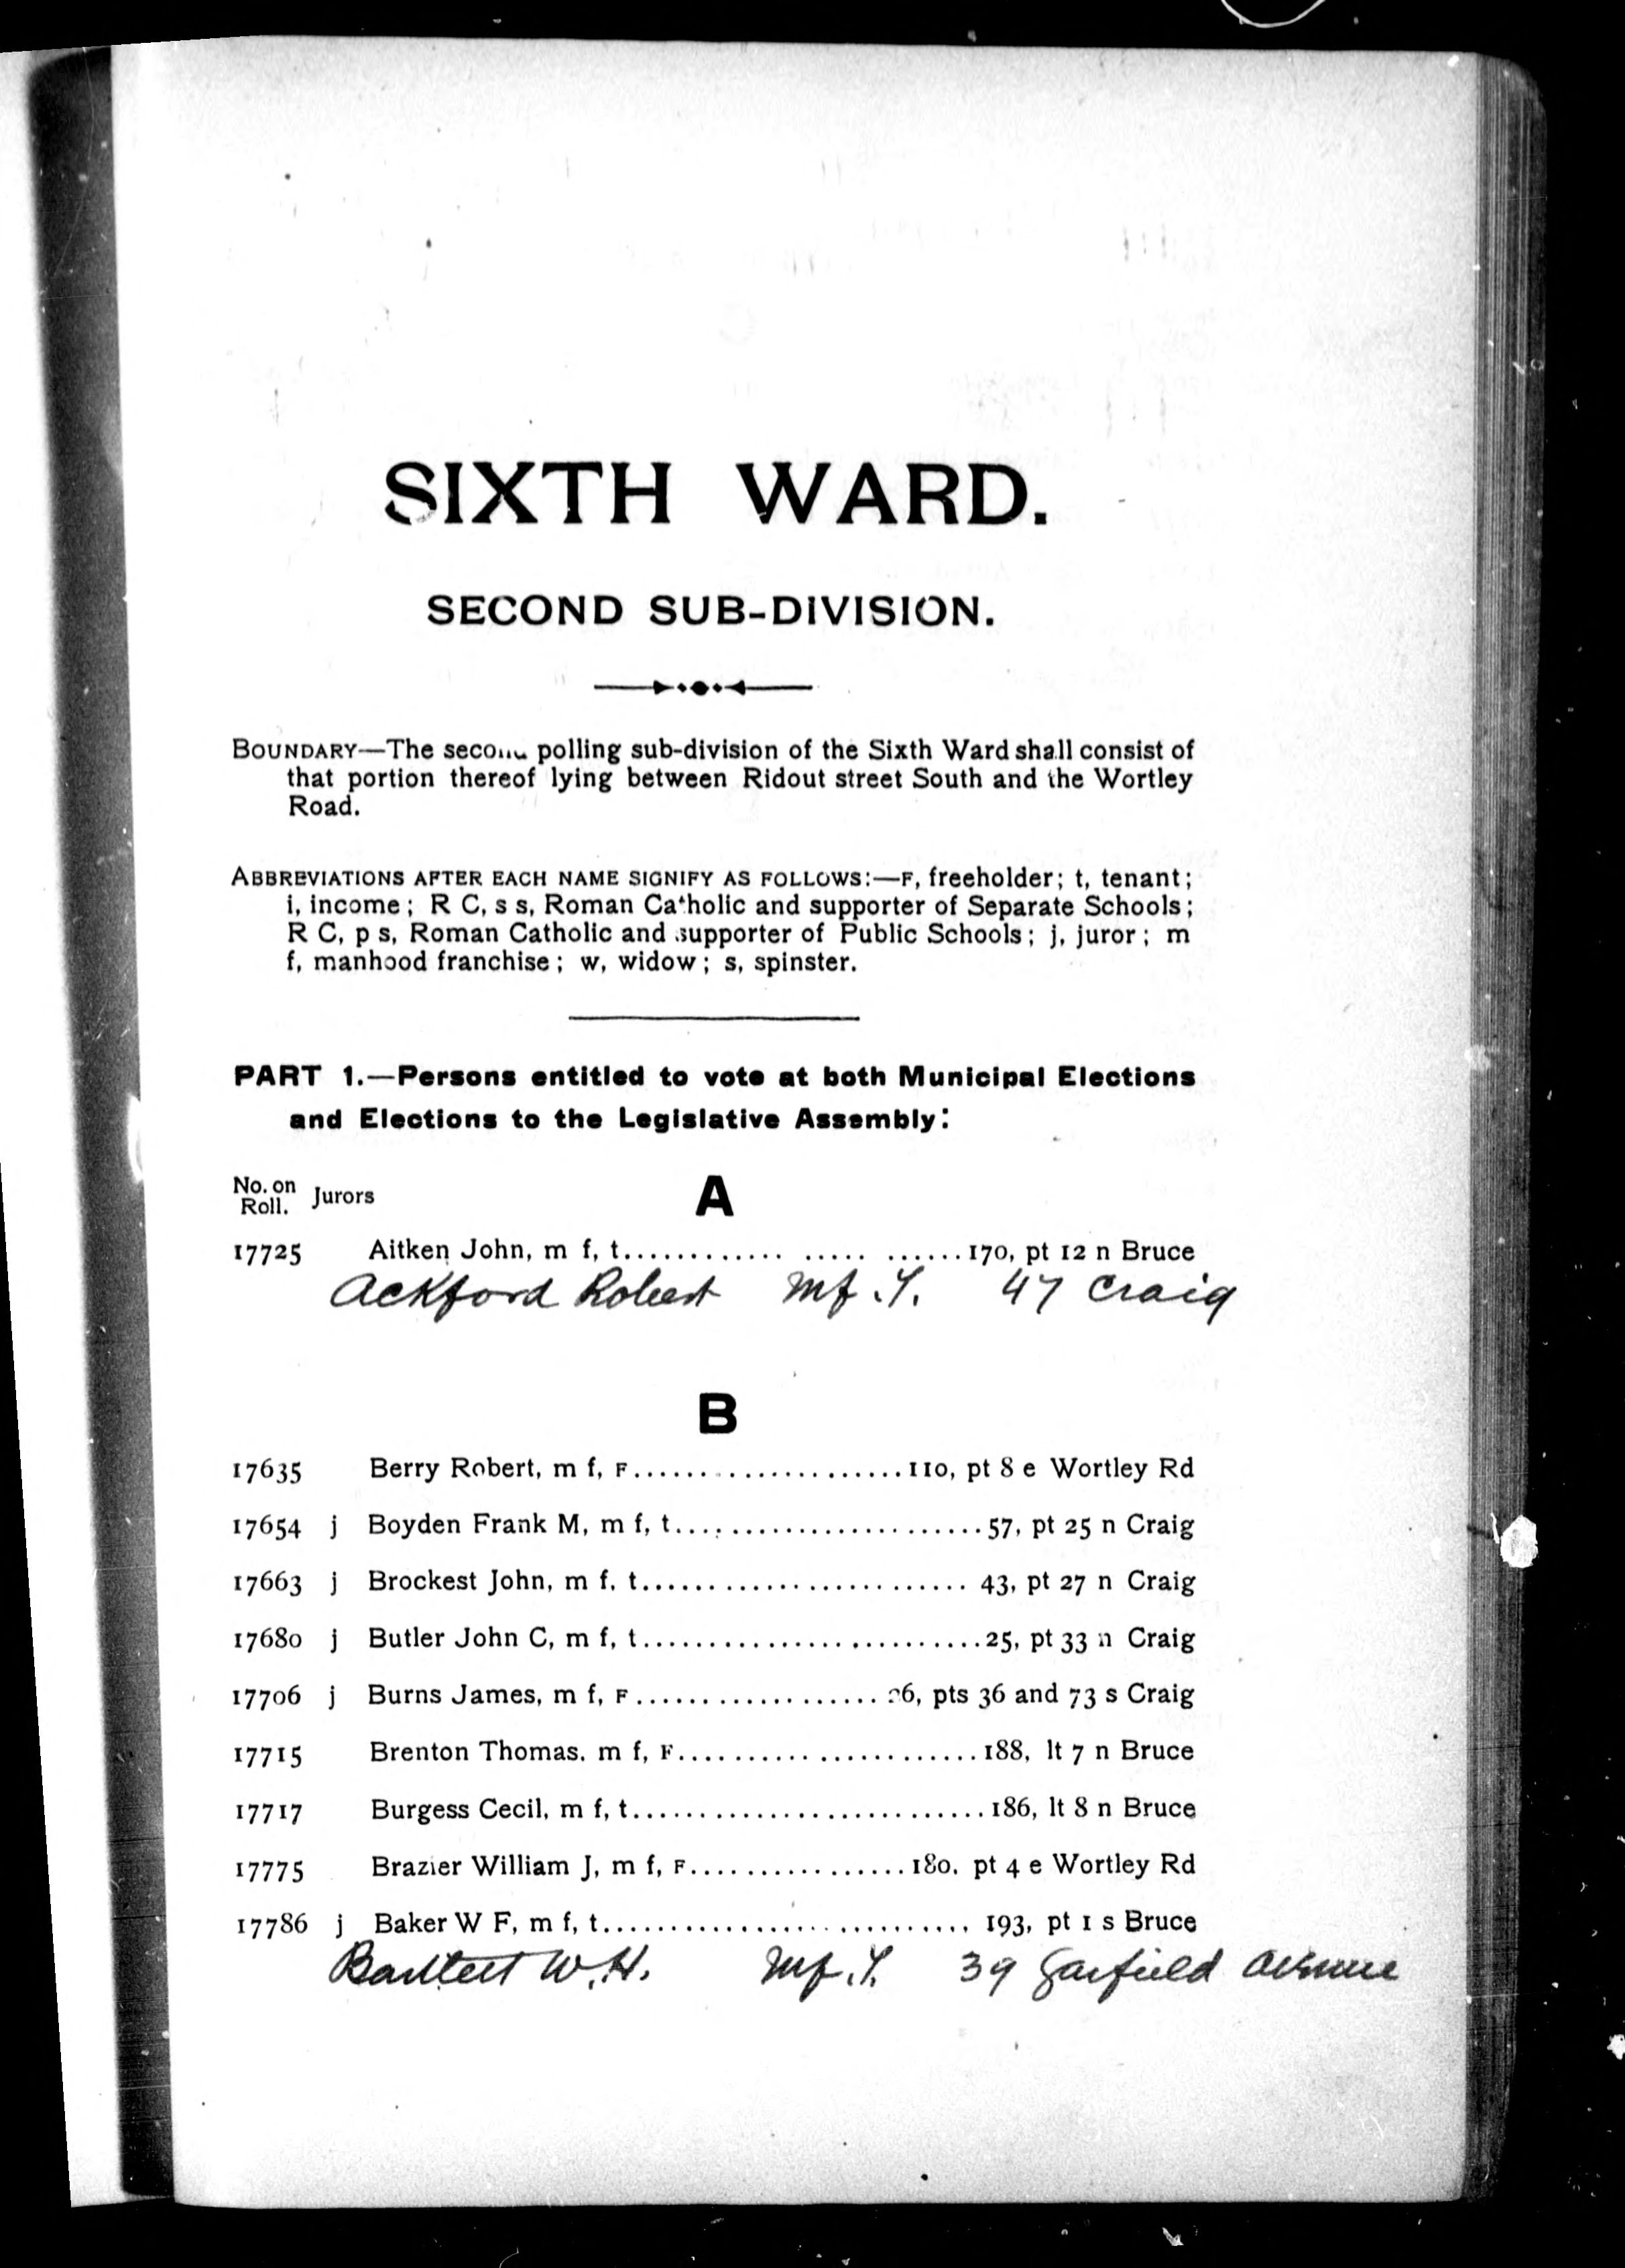 SIXTH WARD.
SECOND SUB-DIVISION.
BOUNDARY—The second polling sub-division of the Sixth Ward shall consist of
that portion thereof lying between Ridout street South and the Wortley
Road.
ABBREVIATIONS AFTER EACH NAME SIGNIFY AS FOLLOWS:—F, freeholder; t, tenant;
i, income; R C, s s, Roman Catholic and supporter of Separate Schools;
R C, p s, Roman Catholic and supporter of Public Schools; j, juror; m
f, manhood franchise; w, widow; s, spinster.
PART 1.—Persons entitled to vote at both Municipal Elections
and Elections to the Legislative Assembly:
No. on Roll. Jurors
A
17725 Aitken John, m f, t............ ..... ......170, pt 12 n Bruce
Ackford Robert mf. T. 47 Craig
B
17635 Berry Robert, m f, F....................110, pt 8 e Wortley Rd
17654 j Boyden Frank M, m f, t.......................57, pt 25 n Craig
17663 j Brockest John, m f, t........................ 43, pt 27 n Craig
17680 j Butler John C, m f, t.........................25, pt 33 n Craig
17706 j Burns James, m f, F.................. 6, pts 36 and 73 s Craig
17715 Brenton Thomas. m f, F......................188, lt 7 n Bruce
17717 Burgess Cecil, m f, t..........................186, lt 8 n Bruce
17775 Brazier William J, m f, F................180, pt 4 e Wortley Rd
17786 j Baker W F, m f, t........................... 193, pt 1 s Bruce
Bartlett W. H. mf. T. 39 Garfield Avenue